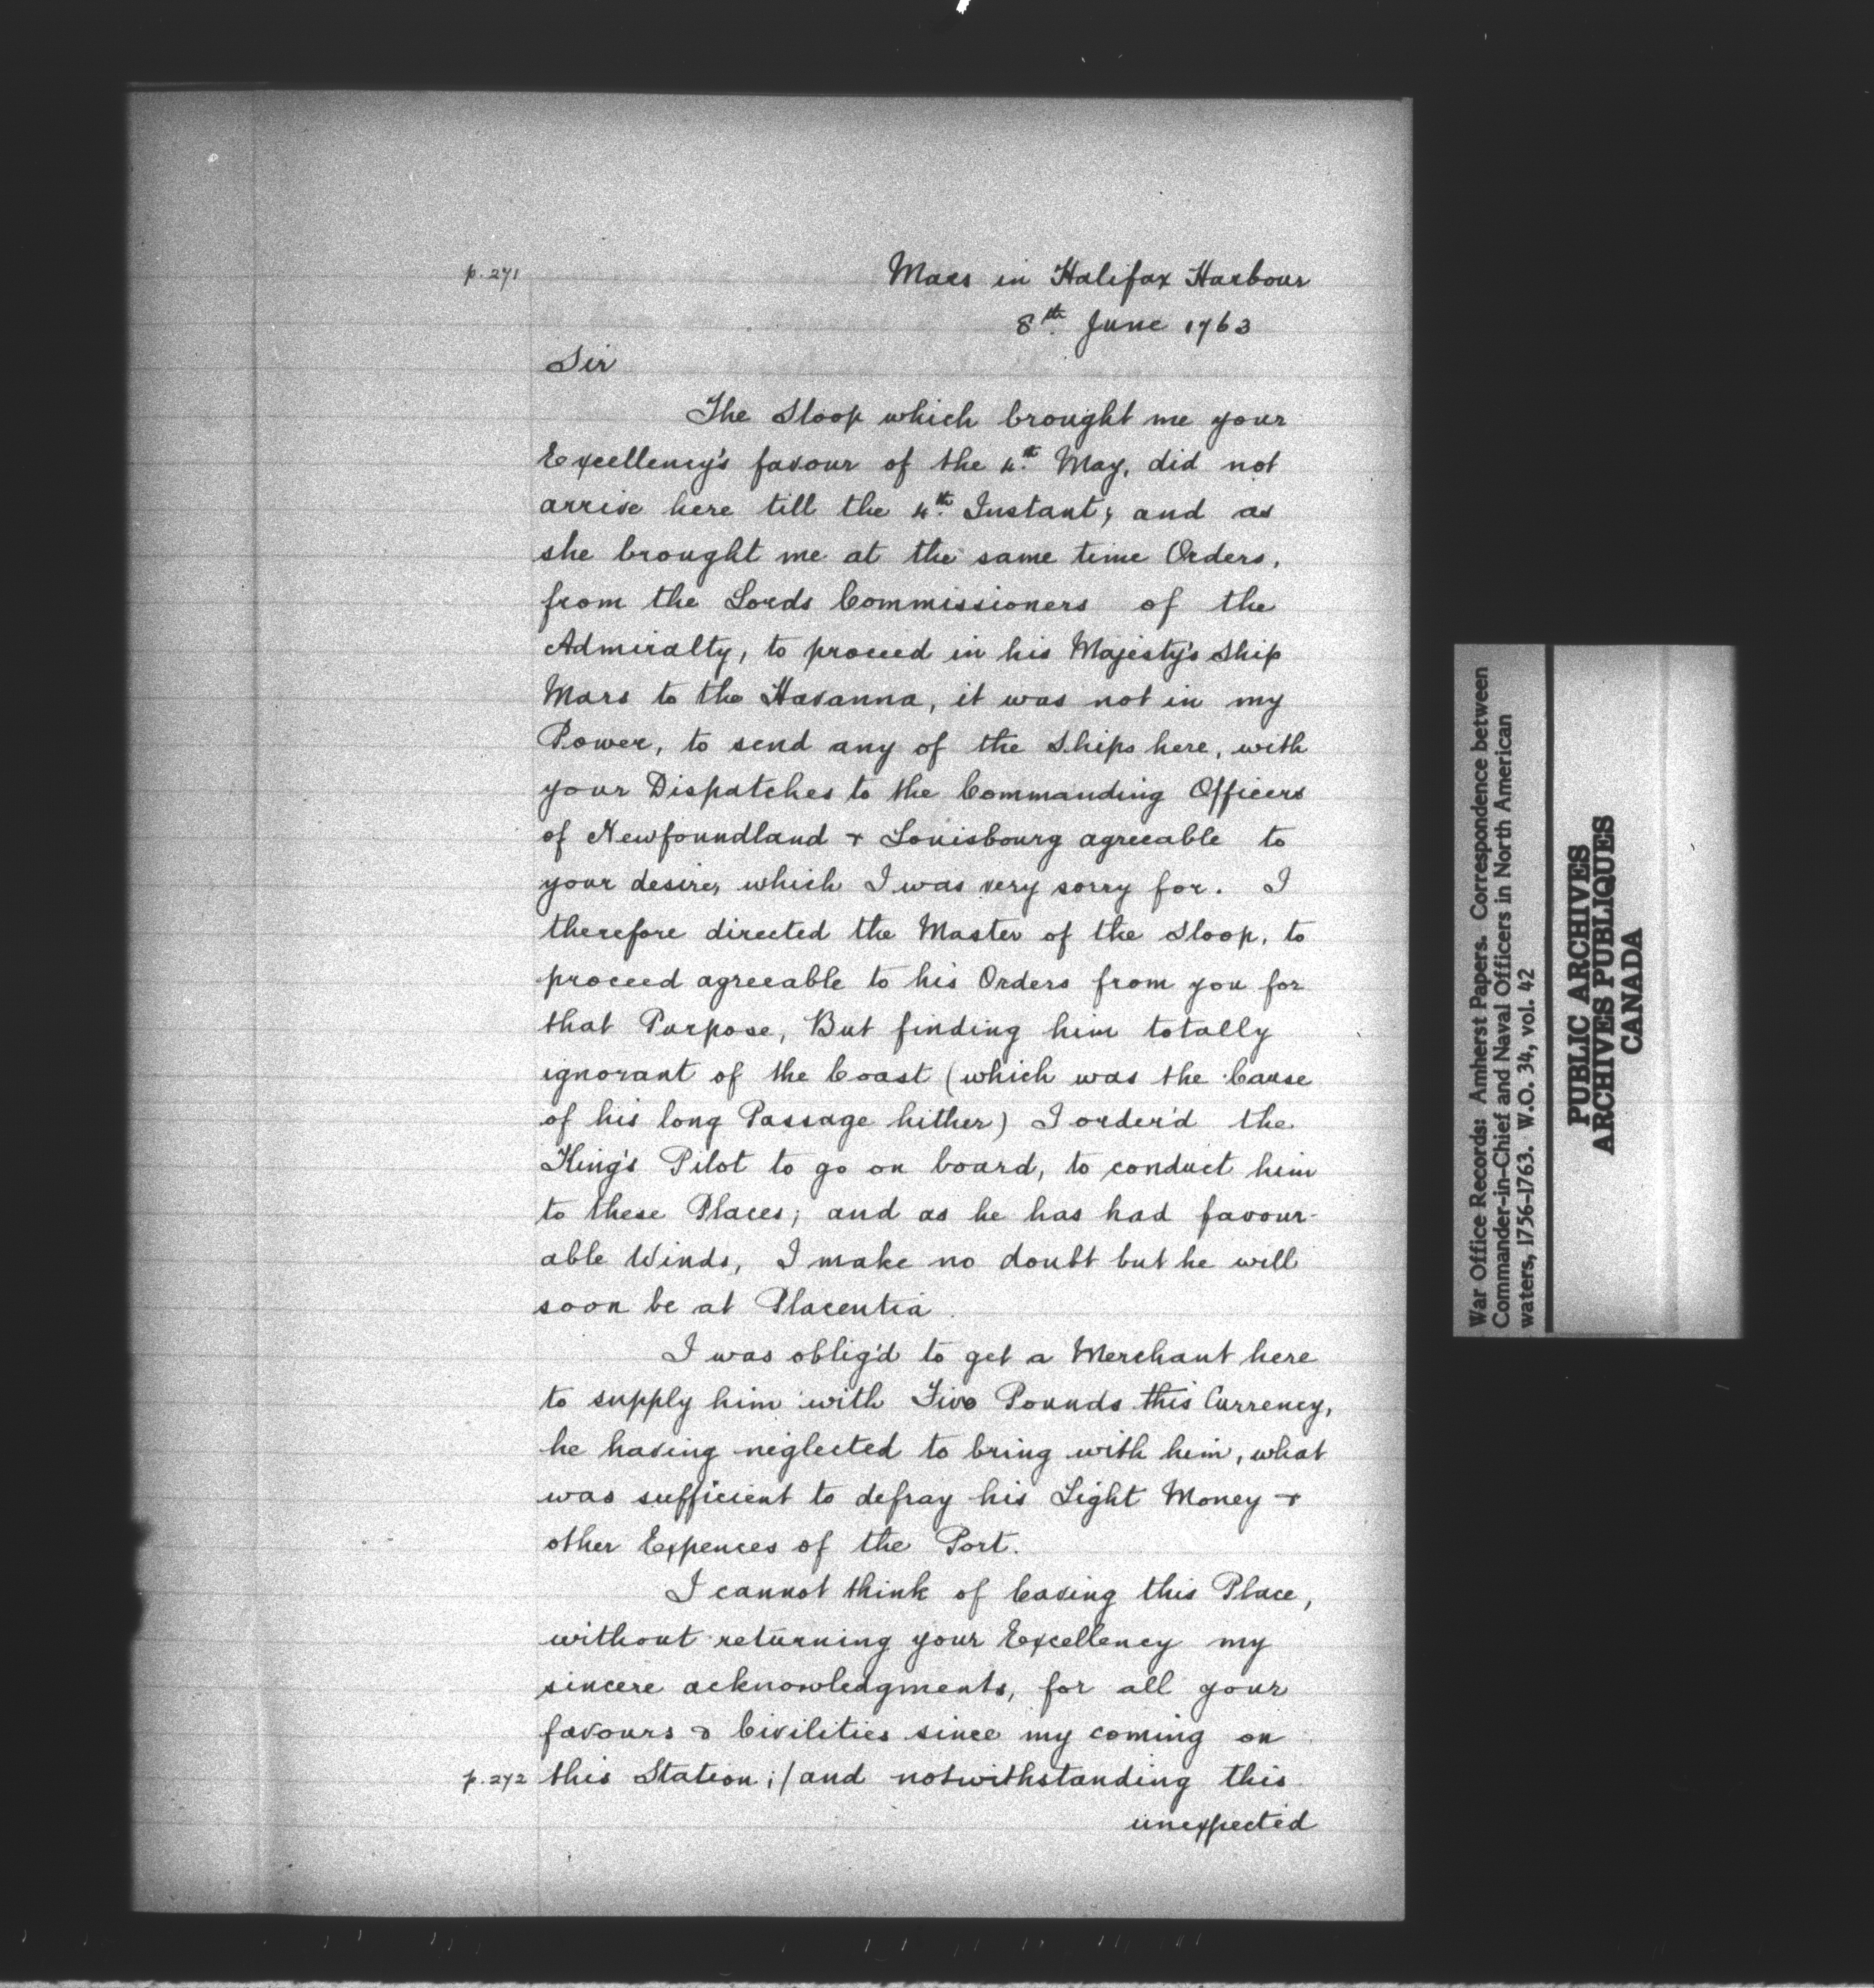 p. 271
Mars in Halifax Harbour
8th. June 1763
Sir
The Sloop which brought me your
Excellency's favour of the 4th. May, did not
arrive here till the 4th. Instant; and as
she brought me at the same time Orders,
from the Lords Commissioners of the
Admiralty, to proceed in his Majesty's Ship
Mars to the Havanna, it was not in my
Power, to send any of the Ships here, with
your Dispatches to the Commanding Officers
of Newfoundland & Louisbourg agreeable to
your desire, which I was very sorry for. I
therefore directed the Master of the Sloop, to
proceed agreeable to his Orders from you for
that Purpose, But finding him totally
ignorant of the Coast (which was the Cause
of his long Passage hither) I order'd the
King's Pilot to go on board, to conduct him
to these Places; and as he has had favour-
able Winds, I make no doubt but he will
soon be at Placentia.
I was oblig'd to get a Merchant here
to supply him with Five Pounds this Currency,
he having neglected to bring with him, what
was sufficient to defray his Light Money &
other Expences of the Port.
I cannot think of leaving this Place,
without returning your Excellency my
sincere acknowledgments, for all your
favours & Civilities since my coming on
p. 272 this Station;/and notwithstanding this
unexpected
War Office Records: Amherst Papers. Correspondence between
Commander-in-Chief and Naval Officers in North American
waters, 1756-1763. W.O. 34, vol. 42
PUBLIC ARCHIVES
ARCHIVES PUBLIQUES
CANADA